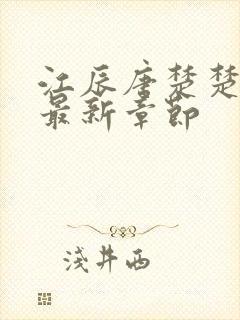 江辰唐楚楚
最新章节
浅井西